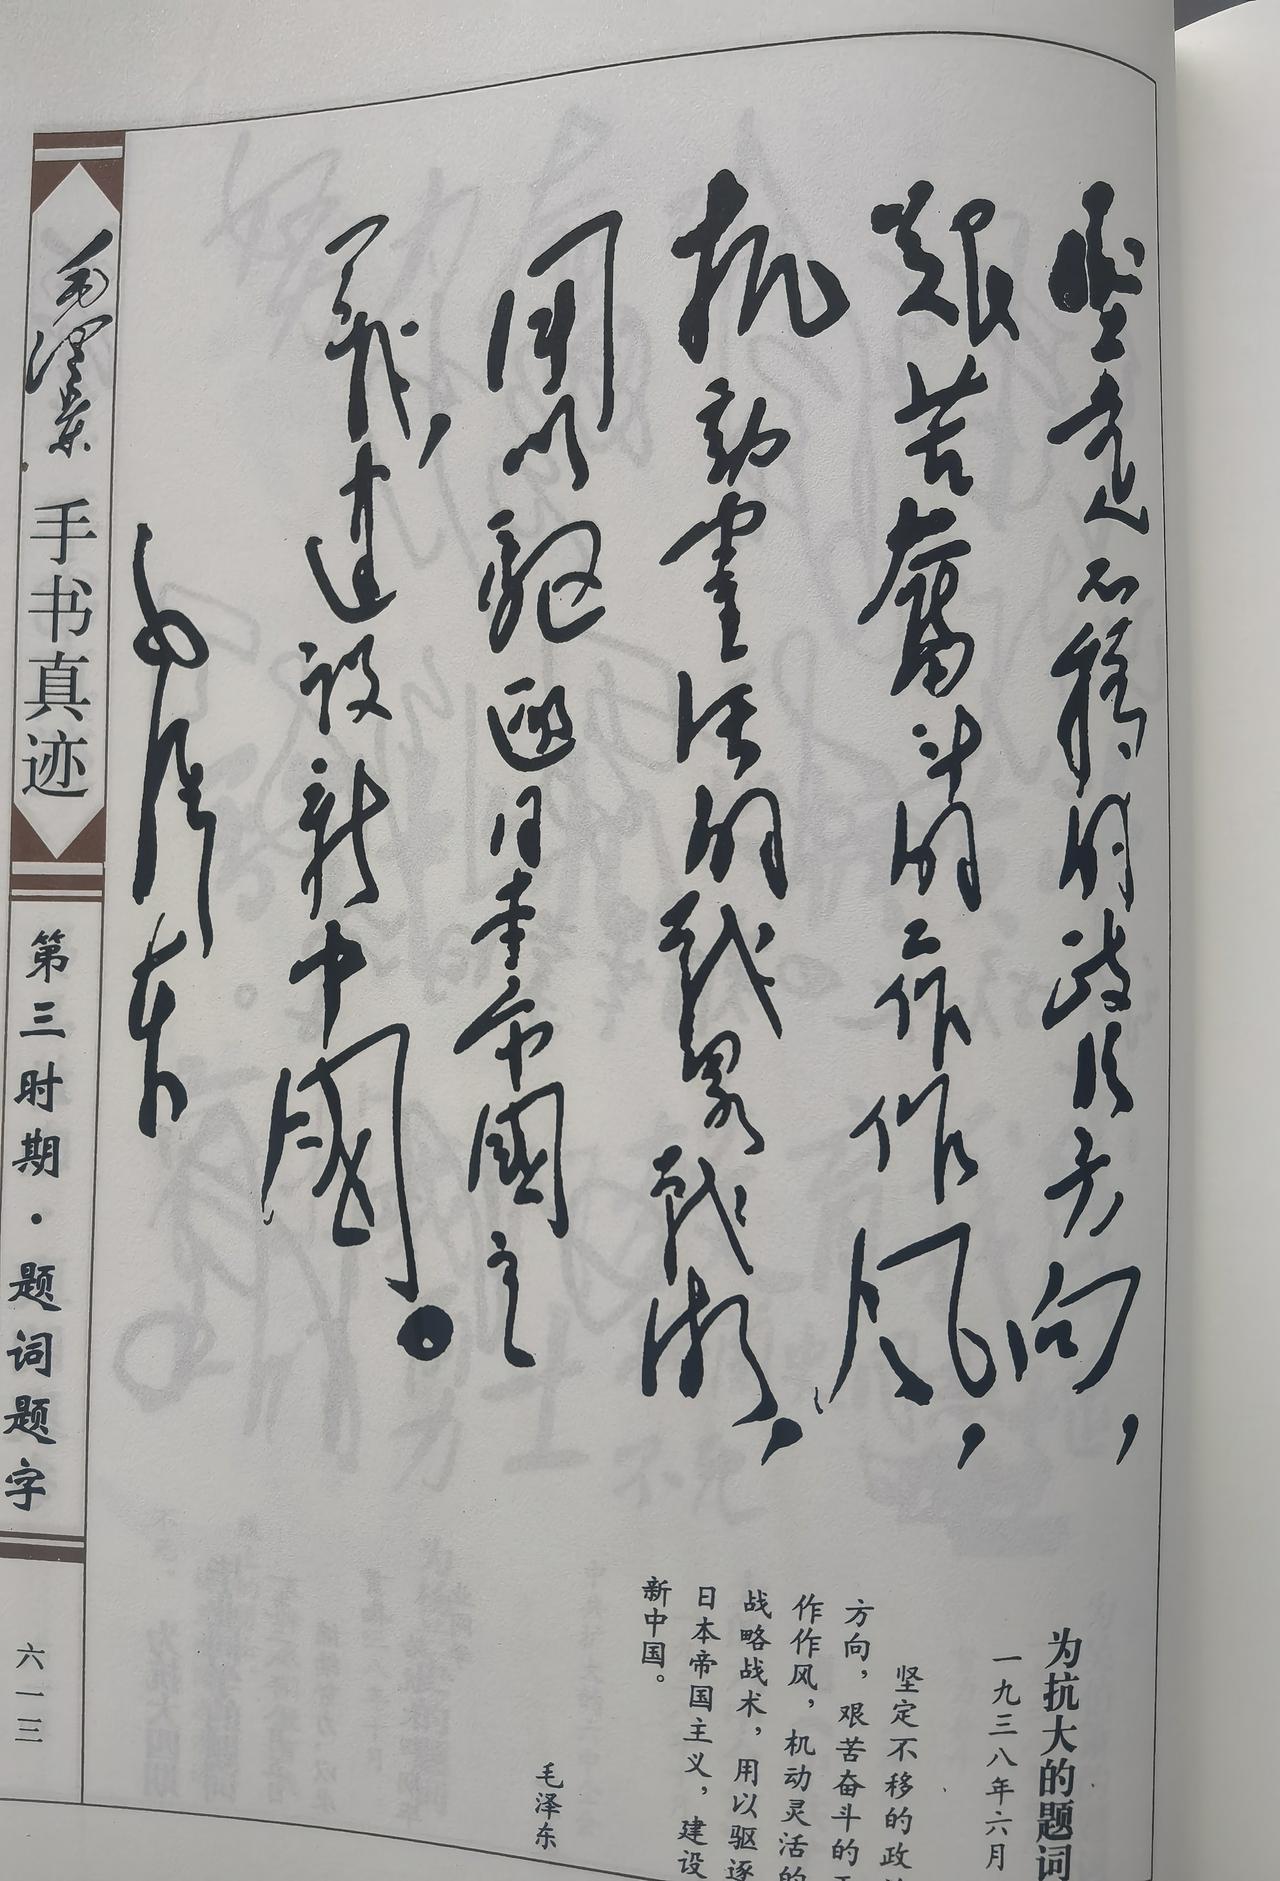 堅定不移的政治方向，
艱苦奮斗的工作作风，
机動靈活的战略战術，
用以驱逐日本帝國主
義，建設新中國。
毛泽东
为抗大的题词
一九三八年六月
坚定不移的政
方向，艰苦奋斗的
作作风，机动灵活的
战略战术，用以驱逐
日本帝国主义，建设
新中国。
毛泽东
毛泽东 手书真迹
第三时期·题词题字
六一三